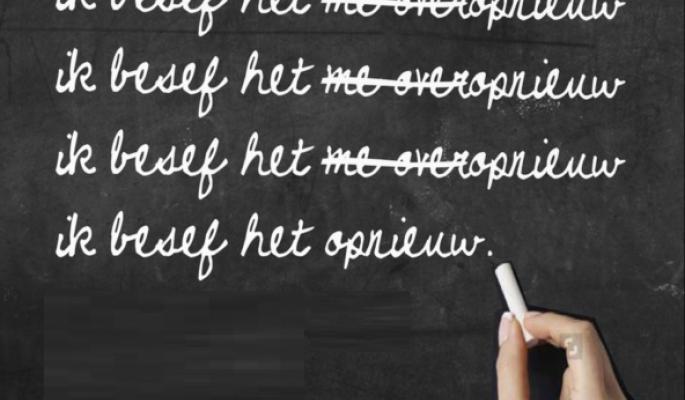 ik besef het me overopnieuw
ik besef het me overopnieuw
ik besef het me overopnieuw
ik besef het opnieuw.